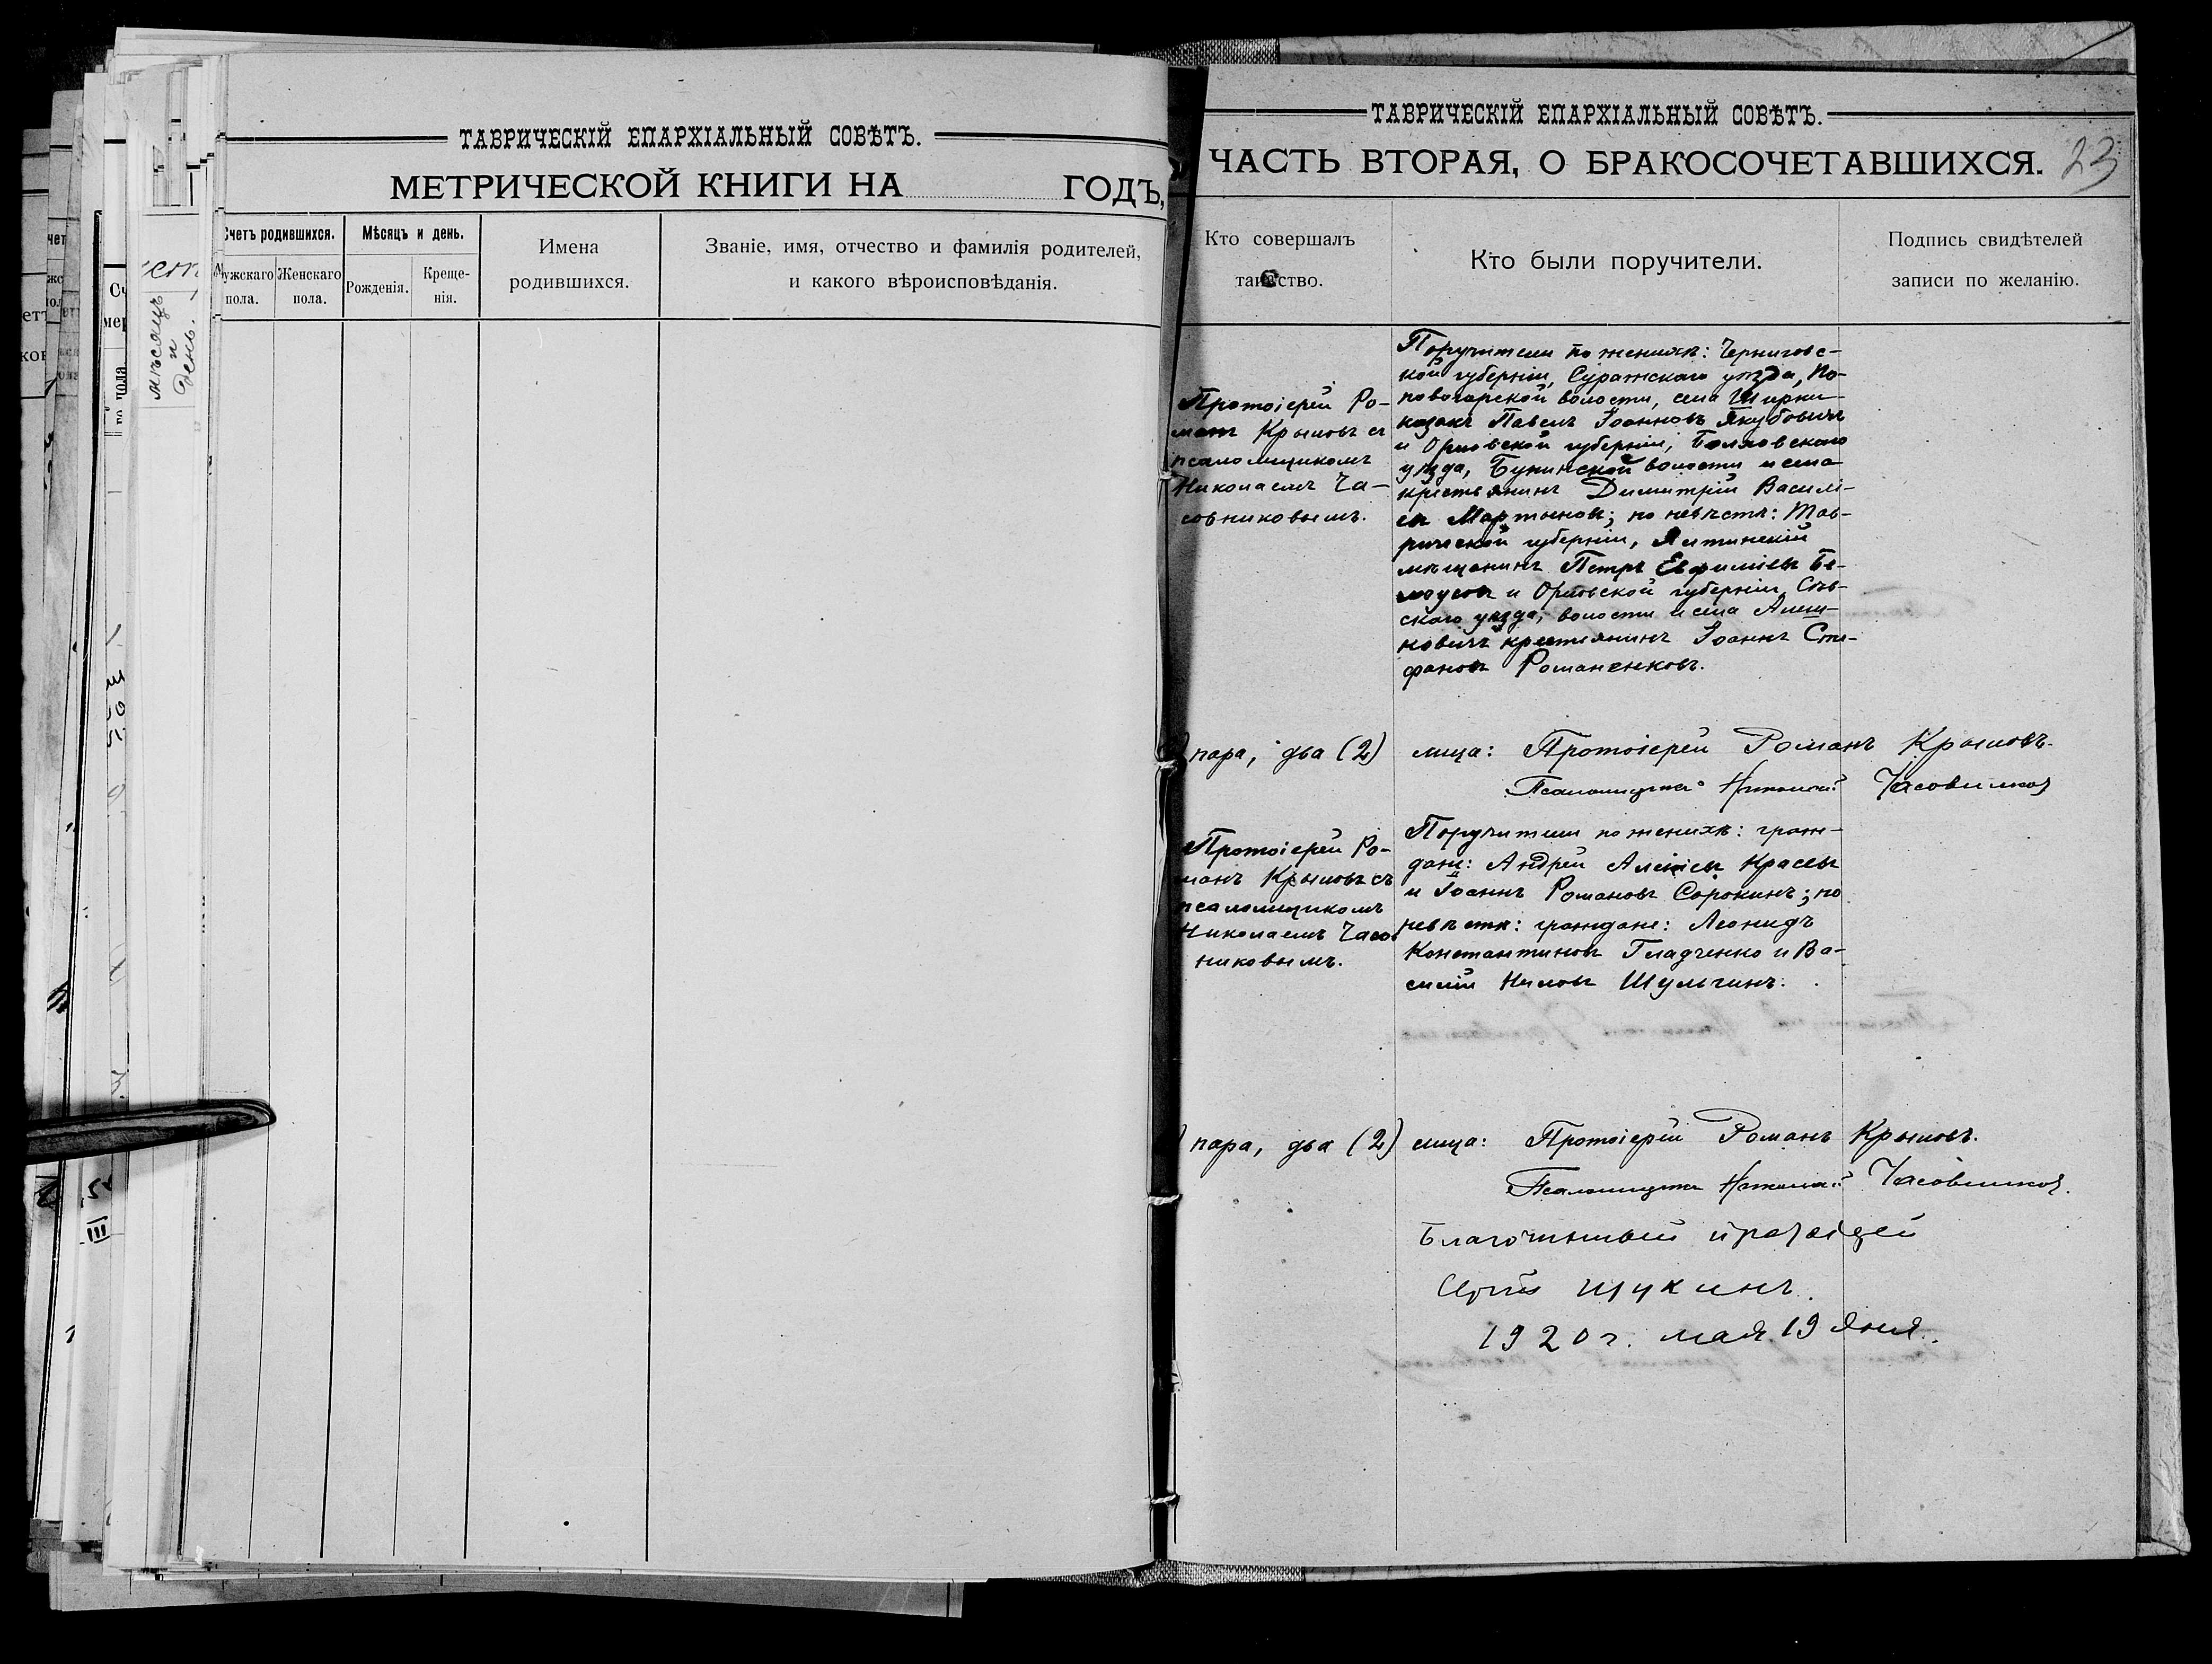 ТАВРИЧЕСКІЙ ЕПАРХІАЛЬНЫЙ СОВѢТЪ.
МЕТРИЧЕСКОЙ КНИГИ НА ГОДЪ,
Счетъ родившихся.
Мужскаго пола.
Женскаго пола.
Мѣсяцъ и день.
Рожденія.
Креще-
нія.
Имена
родившихся.
Званіе, имя, отчество и фамилія родителей,
и какого вѣроисповѣданія.
мѣсяцъ
и
день.
ТАВРИЧЕСКІЙ ЕПАРХІАЛЬНЫЙ СОВѢТЪ.
ЧАСТЬ ВТОРАЯ, О БРАКОСОЧЕТАВШИХСЯ. 23
Кто совершалъ
таинство.
Кто были поручители.
Подпись свидѣтелей
записи по желанію.
Протоіерей Ро-
манъ Крыловъ съ
псаломщикомъ
Николаемъ Ча-
совниковымъ.
Поручители по женихѣ: Черниговс-
кой губерніи, Суражскаго уѣзда, По-
повогорской волости, села Ширки
казакъ Павелъ Іоанновъ Якубовичъ
и Орловской губерніи, Болховского
уѣзда, Бунинской волости и села
крестьянинъ Димитрій Василі-
евъ Мартыновъ; по невѣстѣ: Тав-
рической губерніи, Ялтинскій
мѣщанинъ Петръ Евфиміевъ Бе-
лоусовъ и Орловской губерніи, Сѣв-
скаго уѣзда, волости и села Алеш-
ковичъ крестьянинъ Іоаннъ Сте-
фановъ Романенковъ.
пара, два (2) лица: Протоіерей Романъ Крыловъ.
Псаломщикъ Николай Часовников
Протоіерей Ро-
манъ Крыловъ съ
псаломщикомъ
Николаемъ Часов
никовымъ.
Поручители по женихѣ: граж-
дане: Андрей Алексіевъ Красевъ
и Іоаннъ Романовъ Сорокинъ; по
невѣстѣ: граждане: Леонидъ
Константиновъ Гладченко и Ва-
силій Ниловъ Шульгинъ.
пара, два (2) лица: Протоіерей Романъ Крыловъ.
Псаломщикъ Николай Часовников.
Благочинный протоіерей
Щукинъ.
1920 г. мая 19 дня.